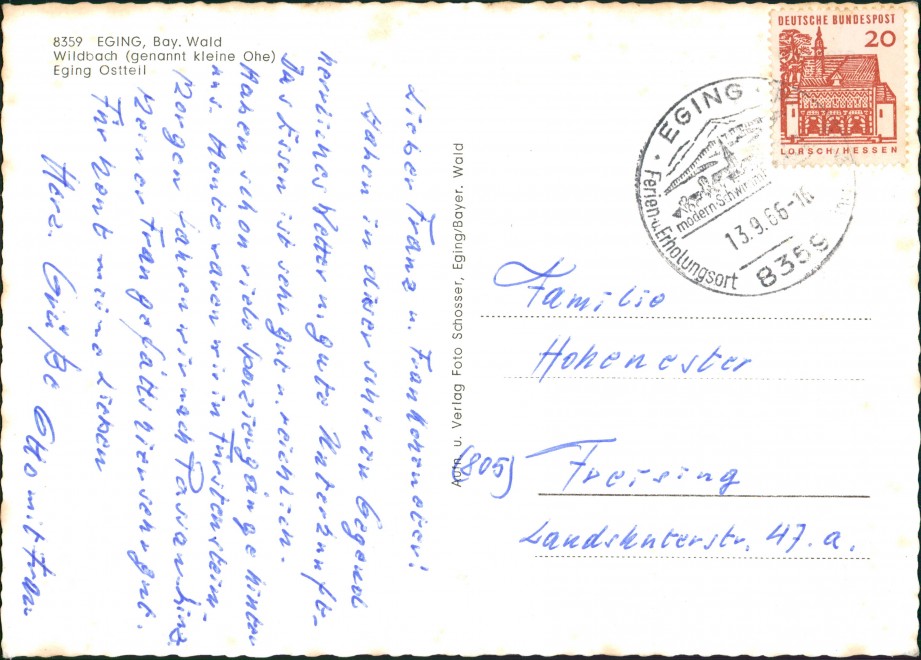 8359 EGING, Bay. Wald
Wildbach (genannt kleine Ohe)
Eging Ostteil
Lieber Franz u. Frau Hohenester!
Haben in dieser schönen Gegend
herrliches Wetter u. gute Unterkunft.
Das Essen ist sehr gut u. reichlich.
Haben schon viele Spaziergänge hinter
uns. Heute waren wir in Fürstenstein
Morgen fahren wir nach Passau.
Meiner Frau gefällts hier sehr gut.
Für heut meine lieben
Herz. Grüße Otto mit Frau
Aufn. u. Verlag Foto Schosser, Eging/Bayer. Wald
DEUTSCHE BUNDESPOST
20
LORSCH/HESSEN
EGING
modern. Schwimm
Ferien- u. Erholungsort
13.9.66-16
8359
Familie
Hohenester
(805) Freising
Landshuterstr. 47.a.